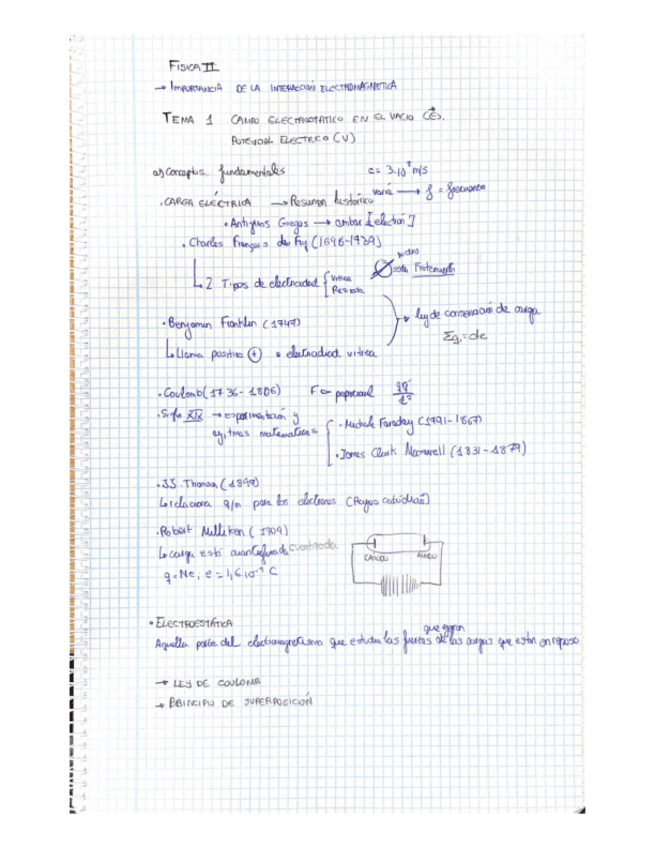 FISICA II
→ IMPORTANCIA DE LA INTERACCIÓN ELECTROMAGNETICA
TEMA 1 CAMPO ELECTROSTÁTICO EN EL VACIO (E).
POTENCIAL ELECTRICO (V)
a) Conceptos fundamentales c = 3·10⁸ m/s
varia → f = frecuencia
· CARGA ELÉCTRICA → Resumen histórico
· Antiguos Griegos → ambar [electrón]
· Charles François du Fay (1698-1739)
↳ 2 Tipos de electricidad { vitrea
Resinosa
vidrio
seda Frotamiento
· Benjamin Franklin (1747)
↳ Llama positiva (+) a electricidad vitrea
→ ley de conservación de carga
Σq = cte
· Coulomb (1736-1806) F proporcional qq'/r²
· Siglo XIX → experimentación y
matematicas
· Michale Faraday (1791-1867)
· James Clark Maxwell (1831-1879)
· JJ. Thomson (1897)
↳ relaciona q/m para los electrones (Rayos catódicos)
· Robert Milliken (1909)
↳ carga está cuantificada cuantizada
q = Ne, e = 1,6·10⁻¹⁹ C
CATODO ANODO
· ELECTROESTÁTICA
que ejercen
Aquella parte del electromagnetismo que estudia las fuerzas de las cargas que estan en reposo
→ LEY DE COULOMB
→ PRINCIPIO DE SUPERPOSICIÓN